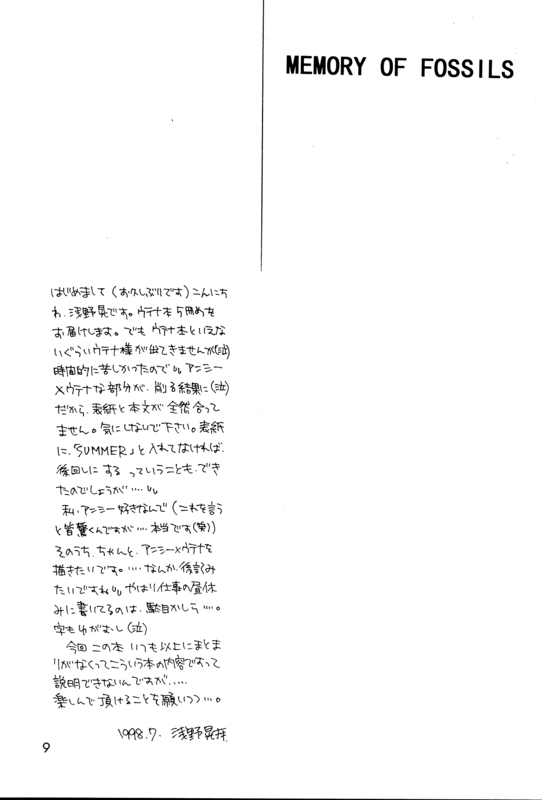 MEMORY OF FOSSILS
はじめまして(お久しぶりです)こんにち
わ、浅野晃です。ウテナ本5冊めを
お届けします。でも ウテナ本といえな
いぐらいウテナ様が出てきませんが(泣)
時間的に苦しかったので、アンシー
×ウテナな部分が、削る結果に(泣)
だから、表紙と本文が全然合って
ません。気にしないで下さい。表紙
に、「SUMMER」と入れてなければ、
後回しに する っていうことも、でき
たのでしょうが‥‥
私、アンシー好きなんで(これを言う
と皆驚くんですが‥‥本当です(笑))
そのうち、ちゃんと、アンシー×ウテナを
描きたいです。‥‥なんか、後記み
たいですね やはり仕事の昼休
みに書いてるのは、駄目かしら‥‥。
字もゆがむ‥し(泣)
今回 この本 いつも以上にまとま
りがなくってこういう本の内容ですって
説明できないんですが‥‥‥
楽しんで頂けることを願いつつ‥‥。
1998.7. 浅野晃拝
9